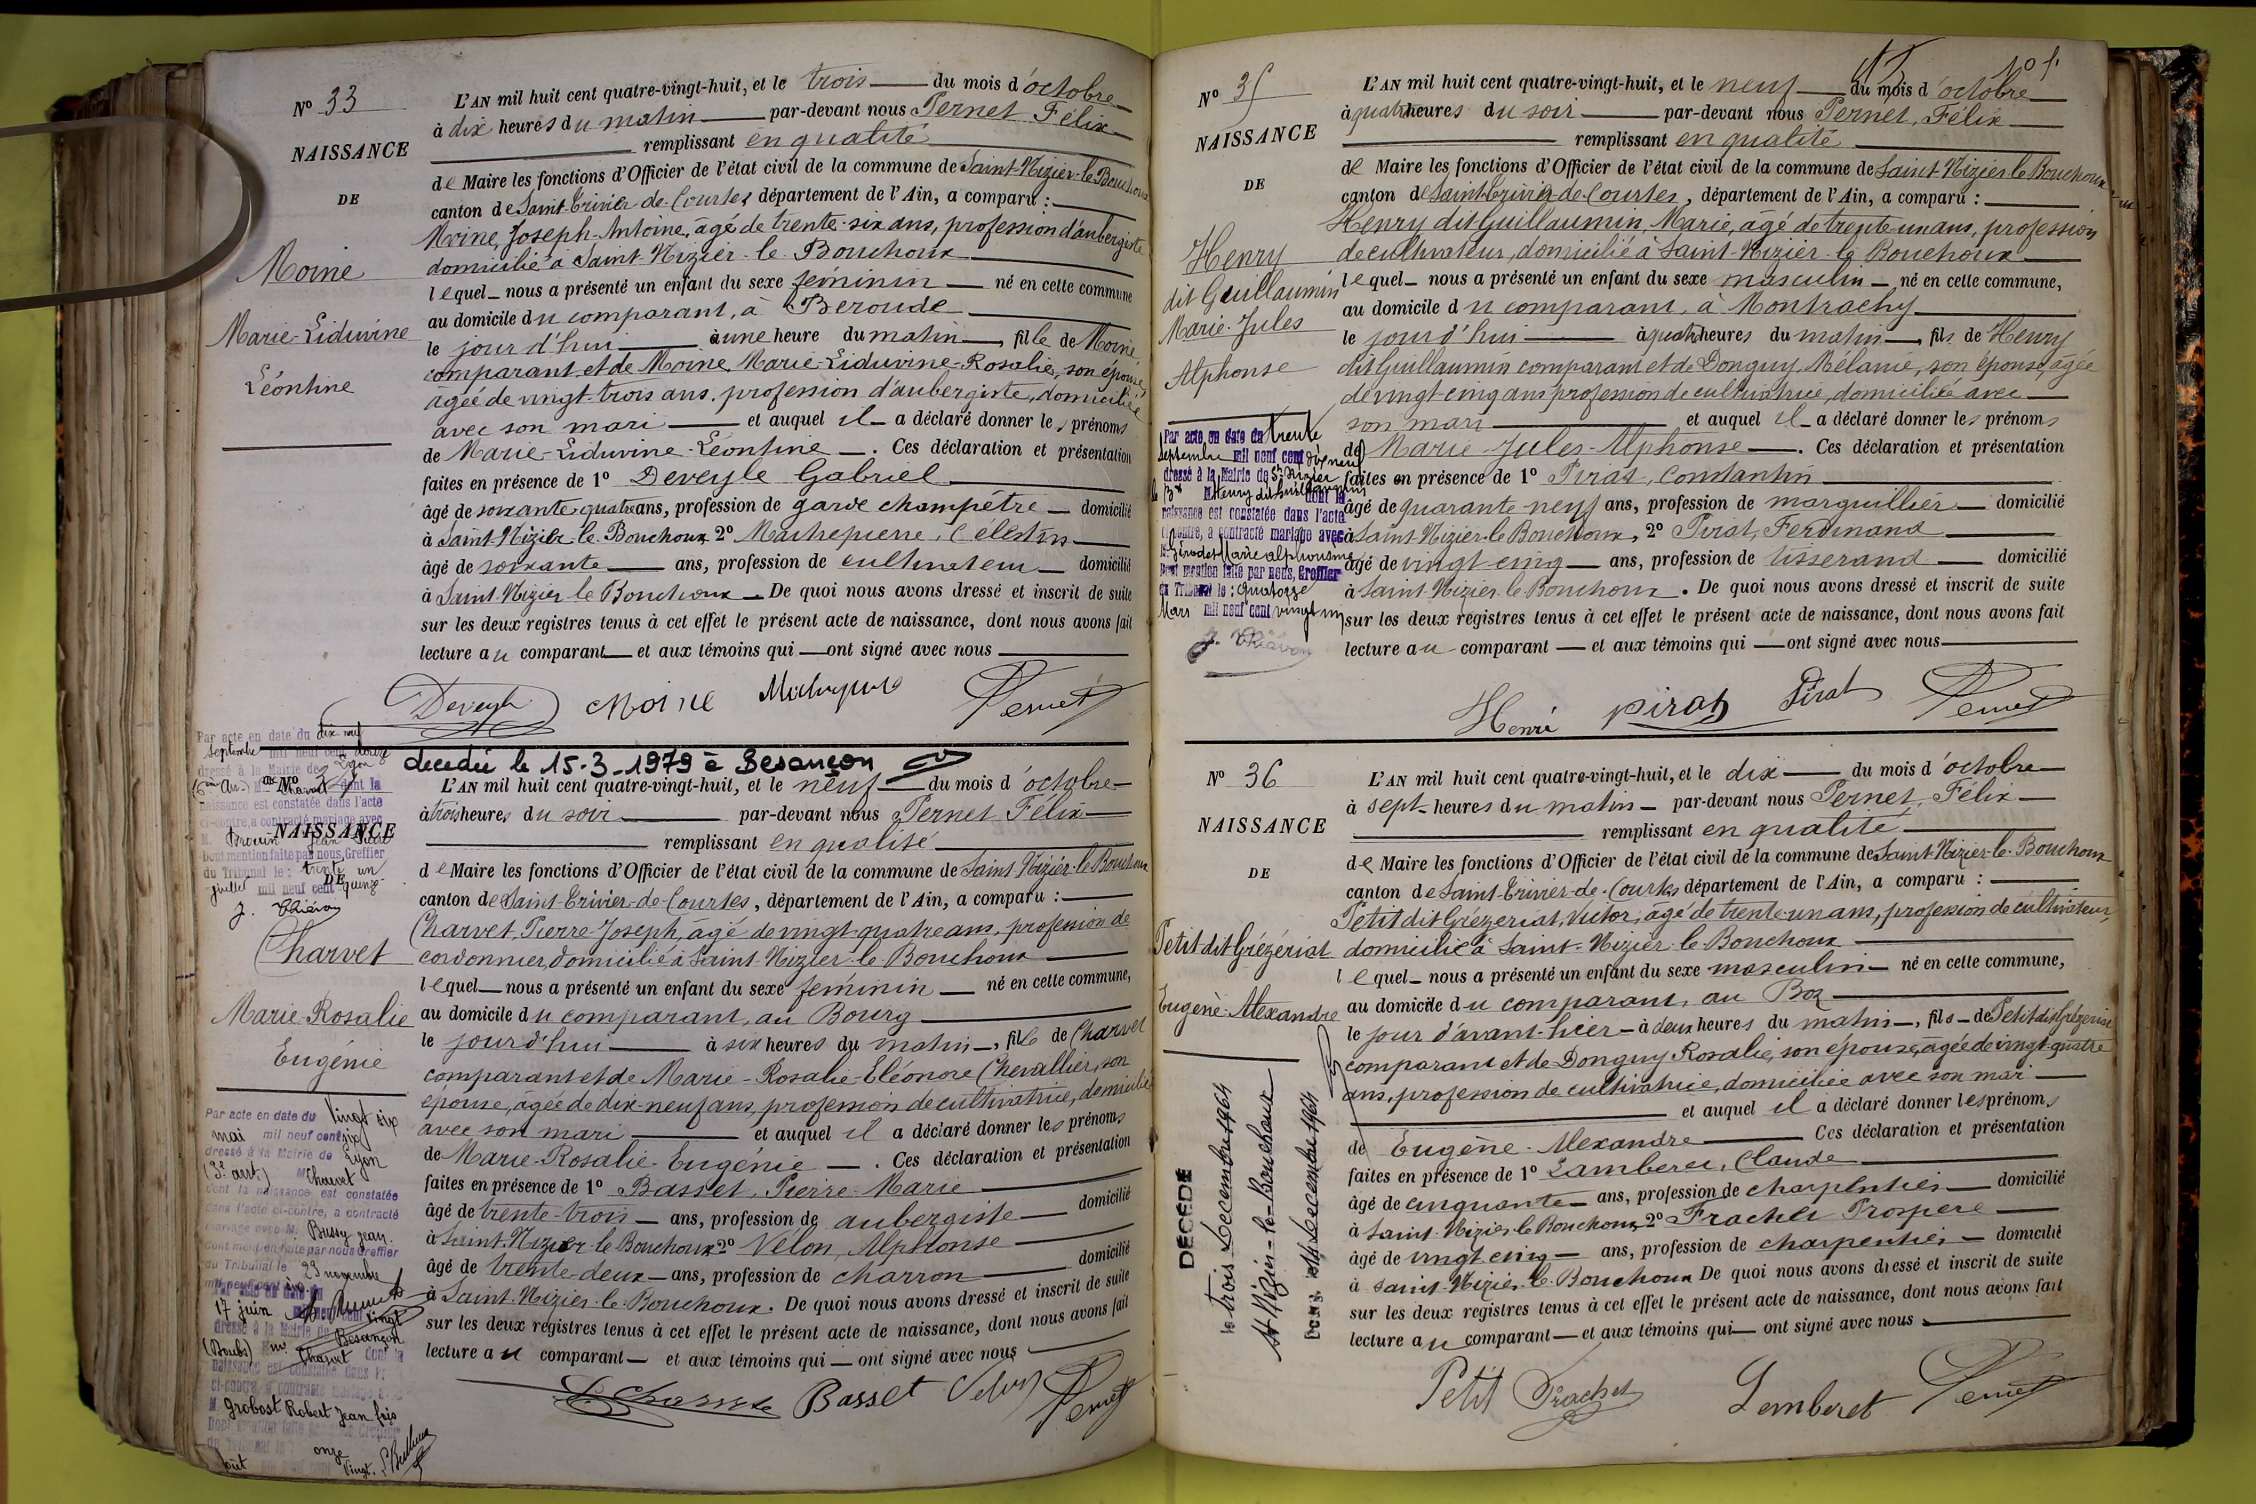 N° 33
NAISSANCE
DE
Moine
Marie-Liduvine
Léontine
L'AN mil huit cent quatre-vingt-huit, et le trois du mois d'octobre
à dix heures du matin par-devant nous Pernet Félix
remplissant en qualité
de Maire les fonctions d'Officier de l'état civil de la commune de Saint-Nizier-le-Bouchoux
canton de Saint-Trivier-de-Courtes département de l'Ain, a comparu :
Moine, Joseph-Antoine, âgé de trente-six ans, profession d'aubergiste
domicilié à Saint-Nizier-le-Bouchoux
lequel nous a présenté un enfant du sexe féminin né en cette commune
au domicile du comparant, à Beroude
le jour d'hui à une heure du matin, fille de Moine
comparant et de Moine Marie-Liduvine-Rosalie, son épouse,
âgée de vingt-trois ans, profession d'aubergiste, domiciliée
avec son mari et auquel il a déclaré donner les prénoms
de Marie-Liduvine-Léontine. Ces déclaration et présentation
faites en présence de 1° Deveyle Gabriel
âgé de soixante-quatre ans, profession de garde champêtre domicilié
à Saint-Nizier-le-Bouchoux 2° Maitrepierre, Célestin
âgé de soixante ans, profession de cultivateur domicilié
à Saint-Nizier le Bouchoux De quoi nous avons dressé et inscrit de suite
sur les deux registres tenus à cet effet le présent acte de naissance, dont nous avons fait
lecture au comparant et aux témoins qui ont signé avec nous
Deveyle Moine Pernet
decedée le 15-3-1979 à Besançon
Par acte en date du dix neuf
septembre mil neuf cent douze
dressé à la Mairie de Lyon
Charvet dont la
naissance est constatée dans l'acte
ci-contre, a contracté mariage avec
M.
Dont mention faite par nous, Greffier
du Tribunal le : trente un
juillet mil neuf cent quinze
N° 34
NAISSANCE
DE
Charvet
Marie-Rosalie
Eugénie
Par acte en date du vingt six
mai mil neuf cent dix
dressé à la Mairie de Lyon
(3e arrt.) Charvet
dont la naissance est constatée
dans l'acte ci-contre, a contracté
mariage avec M. Bussy Jean
dont mention faite par nous Greffier
du Tribunal le 29 novembre
17 juin vingt
dressé à la Mairie de Besançon
(Doubs) Charvet dont la
naissance est constatée dans l'
ci-contre, a contracté mariage a
M. Grobost Robert Jean frçs
onze
août vingt.
L'AN mil huit cent quatre-vingt-huit, et le neuf du mois d'octobre
à trois heures du soir par-devant nous Pernet Félix
remplissant en qualité
de Maire les fonctions d'Officier de l'état civil de la commune de Saint Nizier-le-Bouchoux
canton de Saint-Trivier-de-Courtes, département de l'Ain, a comparu :
Charvet, Pierre-Joseph, âgé de vingt-quatre ans, profession de
cordonnier, domicilié à Saint-Nizier-le-Bouchoux
lequel nous a présenté un enfant du sexe féminin né en cette commune,
au domicile du comparant, au Bourg
le jour d'hui à six heures du matin, fille de Charvet
comparant et de Marie-Rosalie-Eléonore Chevallier, son
épouse, âgée de dix-neuf ans, profession de cultivatrice, domiciliée
avec son mari et auquel il a déclaré donner les prénoms
de Marie-Rosalie-Eugénie. Ces déclaration et présentation
faites en présence de 1° Basset, Pierre-Marie
âgé de trente-trois ans, profession de aubergiste domicilié
à Saint-Nizier-le-Bouchoux 2° Velon, Alphonse
âgé de trente-deux ans, profession de charron domicilié
à Saint-Nizier-le-Bouchoux. De quoi nous avons dressé et inscrit de suite
sur les deux registres tenus à cet effet le présent acte de naissance, dont nous avons fait
lecture au comparant et aux témoins qui ont signé avec nous
Basset Velon Pernet
N° 35
NAISSANCE
DE
Henry
dit Guillaumin
Marie-Jules
Alphonse
Par acte en date du trente
septembre mil neuf cent dix neuf
dressé à la Mairie de St Nizier
le Bx M. Henry dit Guillaumin dont la
naissance est constatée dans l'acte
ci-contre, a contracté mariage avec
Marie Alphonsine
Dont mention faite par nous, Greffier
du Tribunal le : quatorze
Mars mil neuf cent vingt un
L'AN mil huit cent quatre-vingt-huit, et le neuf du mois d'octobre
à quatre heures du soir par-devant nous Pernet, Félix
remplissant en qualité
de Maire les fonctions d'Officier de l'état civil de la commune de Saint-Nizier-le-Bouchoux
canton de Saint-Trivier-de-Courtes, département de l'Ain, a comparu :
Henry dit Guillaumin, Marie, âgé de trente-un ans, profession
de cultivateur, domicilié à Saint-Nizier-le-Bouchoux
lequel nous a présenté un enfant du sexe masculin né en cette commune,
au domicile du comparant, à Montrachy
le jour d'hui à quatre heures du matin, fils de Henry
dit Guillaumin comparant et de Donguy, Mélanie, son épouse, âgée
de vingt-cinq ans profession de cultivatrice, domiciliée avec
son mari et auquel il a déclaré donner les prénoms
de Marie-Jules-Alphonse. Ces déclaration et présentation
faites en présence de 1° Pirat, Constantin
âgé de quarante-neuf ans, profession de marguillier domicilié
à Saint-Nizier-le-Bouchoux, 2° Pirat, Ferdinand
âgé de vingt-cinq ans, profession de tisserand domicilié
à Saint-Nizier-le-Bouchoux. De quoi nous avons dressé et inscrit de suite
sur les deux registres tenus à cet effet le présent acte de naissance, dont nous avons fait
lecture au comparant et aux témoins qui ont signé avec nous
Henri Pirat Pirat Pernet
N° 36
NAISSANCE
DE
Petit dit Grézériat
Eugène-Alexandre
DÉCÉDÉ
le trois Decembre 1964
St Nizier-le-Bouchoux
L'AN mil huit cent quatre-vingt-huit, et le dix du mois d'octobre
à sept heures du matin par-devant nous Pernet, Félix
remplissant en qualité
de Maire les fonctions d'Officier de l'état civil de la commune de Saint-Nizier-le-Bouchoux
canton de Saint-Trivier-de-Courtes département de l'Ain, a comparu :
Petit dit Grézériat, Victor, âgé de trente-un ans, profession de cultivateur,
domicilié à Saint-Nizier-le-Bouchoux
lequel nous a présenté un enfant du sexe masculin né en cette commune,
au domicile du comparant, au Boz
le jour d'avant-hier à deux heures du matin, fils de Petit dit Grézériat
comparant et de Donguy Rosalie, son épouse, âgée de vingt-quatre
ans, profession de cultivatrice, domiciliée avec son mari
et auquel il a déclaré donner les prénoms
de Eugène-Alexandre Ces déclaration et présentation
faites en présence de 1° Lamberet, Claude
âgé de cinquante ans, profession de charpentier domicilié
à Saint-Nizier-le-Bouchoux 2° Frachet Prospère
âgé de vingt cinq ans, profession de charpentier domicilié
à Saint-Nizier-le-Bouchoux De quoi nous avons dressé et inscrit de suite
sur les deux registres tenus à cet effet le présent acte de naissance, dont nous avons fait
lecture au comparant et aux témoins qui ont signé avec nous
Petit Frachet Lemberet Pernet